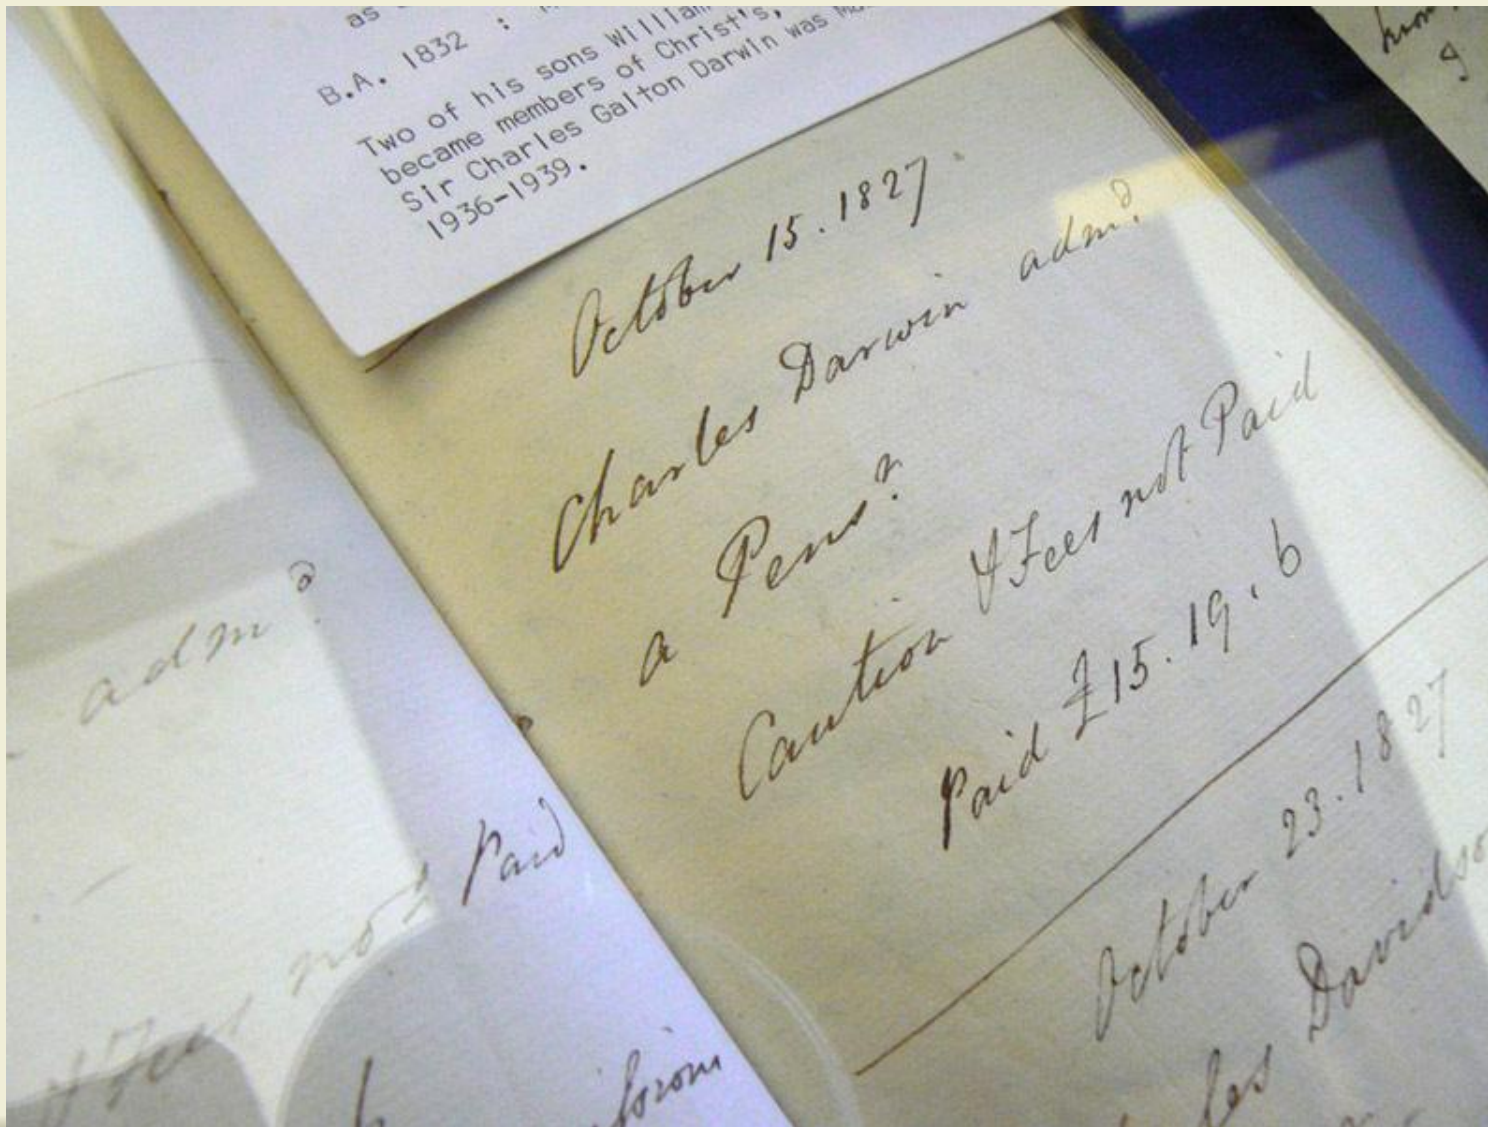 as
B.A. 1832 :
Two of his sons William
became members of Christ's,
Sir Charles Galton Darwin was
1936-1939.
October 15. 1827
Charles Darwin admd
a Pensr
Caution & Fees not Paid
Paid £15. 19. 6
October 23. 1827
Davidso
admd
not Paid
& Fees